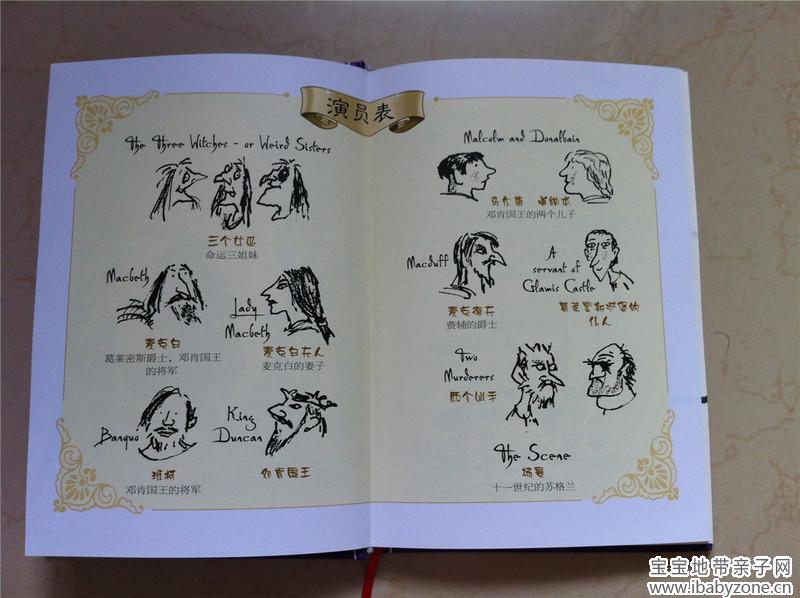 演员表
The Three Witches - or Weird Sisters
三个女巫
命运三姐妹
Macbeth
麦克白
葛莱密斯爵士,邓肯国王
的将军
Lady
Macbeth
麦克白夫人
麦克白的妻子
Banquo
班柯
邓肯国王的将军
King
Duncan
邓肯国王
Malcolm and Donalbain
马尔康 道纳本
邓肯国王的两个儿子
Macduff
麦克德夫
费辅的爵士
A
servant of
Glamis Castle
葛莱密斯城堡的
仆人
Two
Murderers
两个凶手
The Scene
场景
十一世纪的苏格兰
宝宝地带亲子网
www.ibabyzone.cn